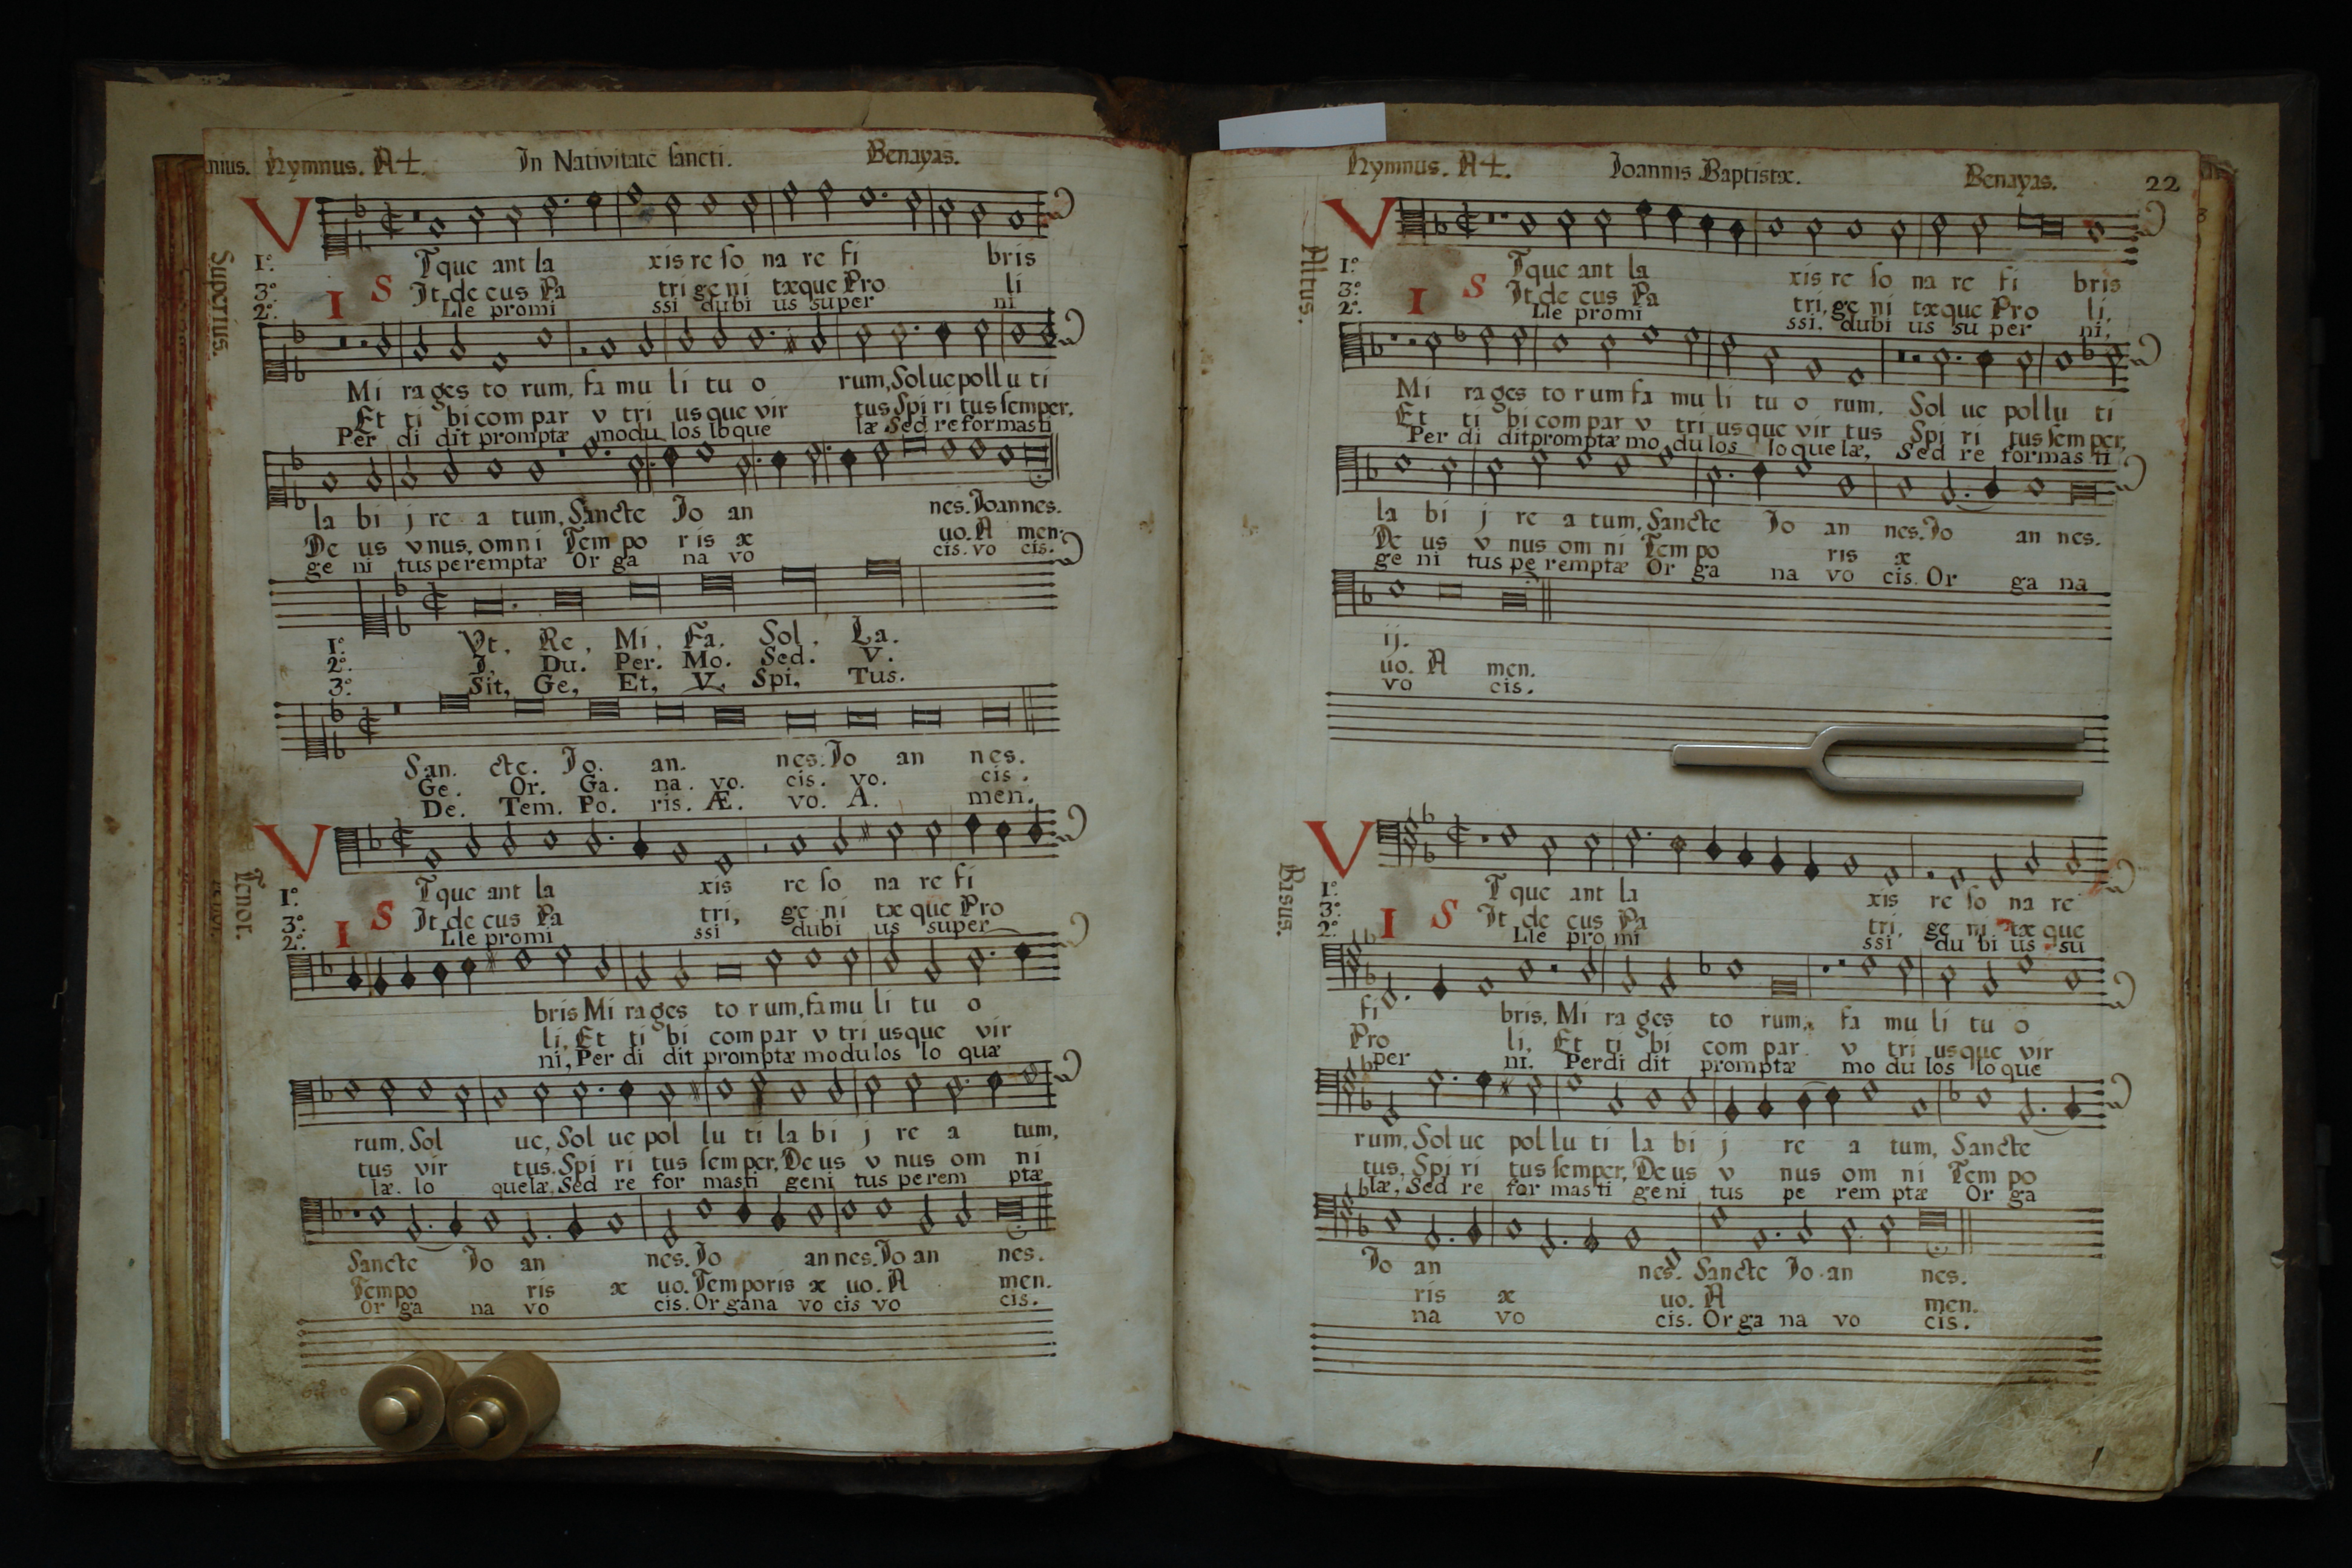 nius. Hymnus. A4. In Nativitate sancti. Benayas.
Superius.
V
1º. Tque ant la xis re so na re fi bris
3º. S It de cus Pa tri ge ni tæque Pro li
2º. I Lle promi ssi dubi us super ni
Mi ra ges to rum, fa mu li tu o rum, Solue pollu ti
Et ti bi com par v tri us que vir tus Spi ri tus semper,
Per di dit promptæ modu los loque læ Sed reformasti
la bi j re a tum, Sancte Io an nes. Ioannes.
De us vnus, omni Tem po ris æ uo. A men.
ge ni tus peremptæ Or ga na vo cis. vo cis.
1º. Vt. Re. Mi. Fa. Sol. La.
2º. I. Du. Per. Mo. Sed. V.
3º. Sit, Ge, Et, V. Spi, Tus.
San. cte. Io. an. nes. Io an nes.
Ge. Or. Ga. na. vo. cis. vo. cis.
De. Tem. Po. ris. Æ. vo. A. men.
Tenor.
V
1º. Tque ant la xis re so na re fi
3º. S It de cus Pa tri, ge ni tæ que Pro
2º. I Lle promi ssi dubi us super
bris Mi ra ges to rum, famu li tu o
li, Et ti bi com par v tri usque vir
ni, Per di dit promptæ modulos lo quæ
rum, Sol ue, Sol ue pol lu ti la bi j re a tum,
tus vir tus. Spi ri tus semper, De us v nus om ni
læ. lo quelæ, Sed re for masti geni tus perem ptæ
Sancte Io an nes. Io an nes. Io an nes.
Tempo ris æ uo. Temporis æ uo. A men.
Or ga na vo cis. Or gana vo cis vo cis.
Hymnus. A4. Ioannis Baptistæ. Benayas. 22
Altus.
V
1º. Tque ant la xis re so na re fi bris
3º. S It de cus Pa tri, ge ni tæque Pro li,
2º. I Lle promi ssi. dubi us su per ni,
Mi ra ges to rum fa mu li tu o rum. Sol ue pollu ti
Et ti bi com par v tri usque vir tus Spi ri tus sem per,
Per di dit promptæ mo du los loque læ, Sed re formas ti
la bi j re a tum, Sancte Io an nes. Io an nes.
De us v nus om ni Tem po ris æ
ge ni tus pe remptæ Or ga na vo cis. Or ga na
ij.
uo. A men.
vo cis.
Basus.
V
1º. T que ant la xis re so na re
3º. S It de cus Pa tri, ge ni tæ que
2º. I Lle pro mi ssi du bi us su
fi bris, Mi ra ges to rum, fa mu li tu o
Pro li, Et ti bi com par v tri usque vir
per ni. Perdi dit promptæ mo du los loque
rum, Sol ue pol lu ti la bi j re a tum, Sancte
tus, Spi ri tus semper, De us v nus om ni Tem po
læ, Sed re for mas ti geni tus pe rem ptæ Or ga
Io an nes. Sancte Io an nes.
ris æ uo. A men.
na vo cis. Or ga na vo cis.